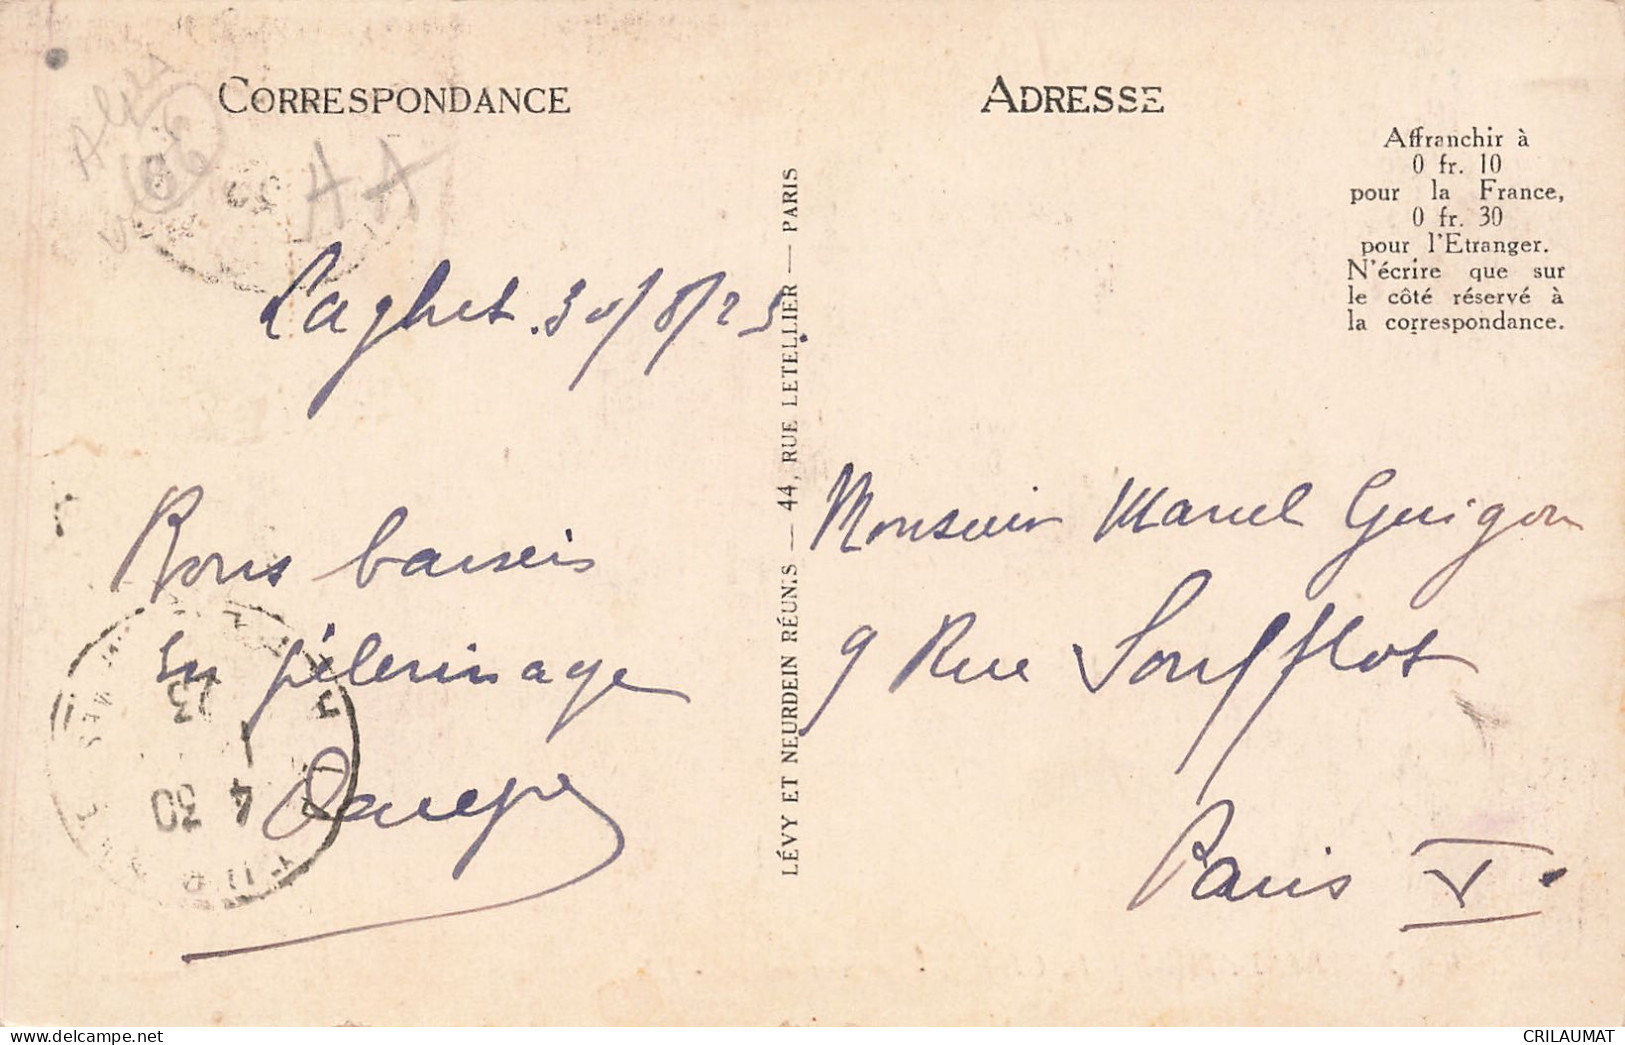 CORRESPONDANCE
Laghet. 30/8/23.
Bons baisers
en pélerinage
ADRESSE
Affranchir à
0 fr. 10
pour la France,
0 fr. 30
pour l'Etranger.
N'écrire que sur
le côté réservé à
la correspondance.
Monsieur Marcel Guigon
9 Rue Soufflot
Paris V.
LÉVY ET NEURDEIN RÉUNIS — 44, RUE LETELLIER — PARIS
4 30
AA
www.delcampe.net
CRILAUMAT